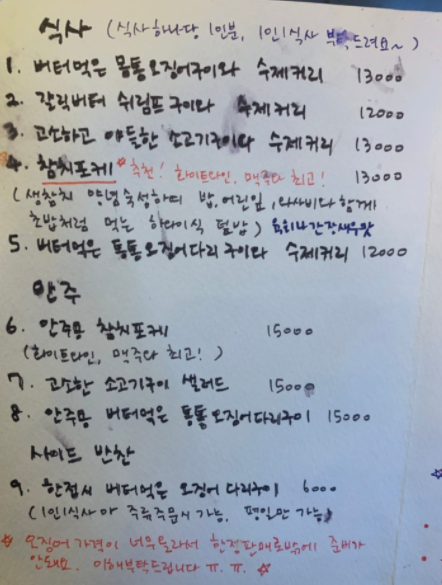 식사 (식사하나당 1인분, 1인1식사 부탁드려요~)
1. 버터먹은 몽통오징어구이와 수제커리 13000
2. 갈릭버터 쉬림프구이와 수제커리 12000
3. 고소하고 야들한 소고기구이와 수제커리 13000
4. 참치포케 추천! 화이트와인, 맥주와 최고! 13000
(생참치 양념숙성하여 밥, 어린잎, 와사비와 함께
초밥처럼 먹는 하와이식 덮밥)
5. 버터먹은 통통오징어다리구이와 수제커리 12000
안주
6. 안주용 참치포케 15000
(화이트와인, 맥주와 최고!)
7. 고소한 소고기구이 샐러드 15000
8. 안주용 버터먹은 통통오징어다리구이 15000
사이드 반찬
9. 한접시 버터먹은 오징어다리구이 6000
(1인1식사와 주류주문시 가능, 평일만 가능)
☆ 오징어가격이 너무올라서 한정판매로밖에 준비가
안돼요. 이해부탁드립니다 ㅠ.ㅠ. ☆